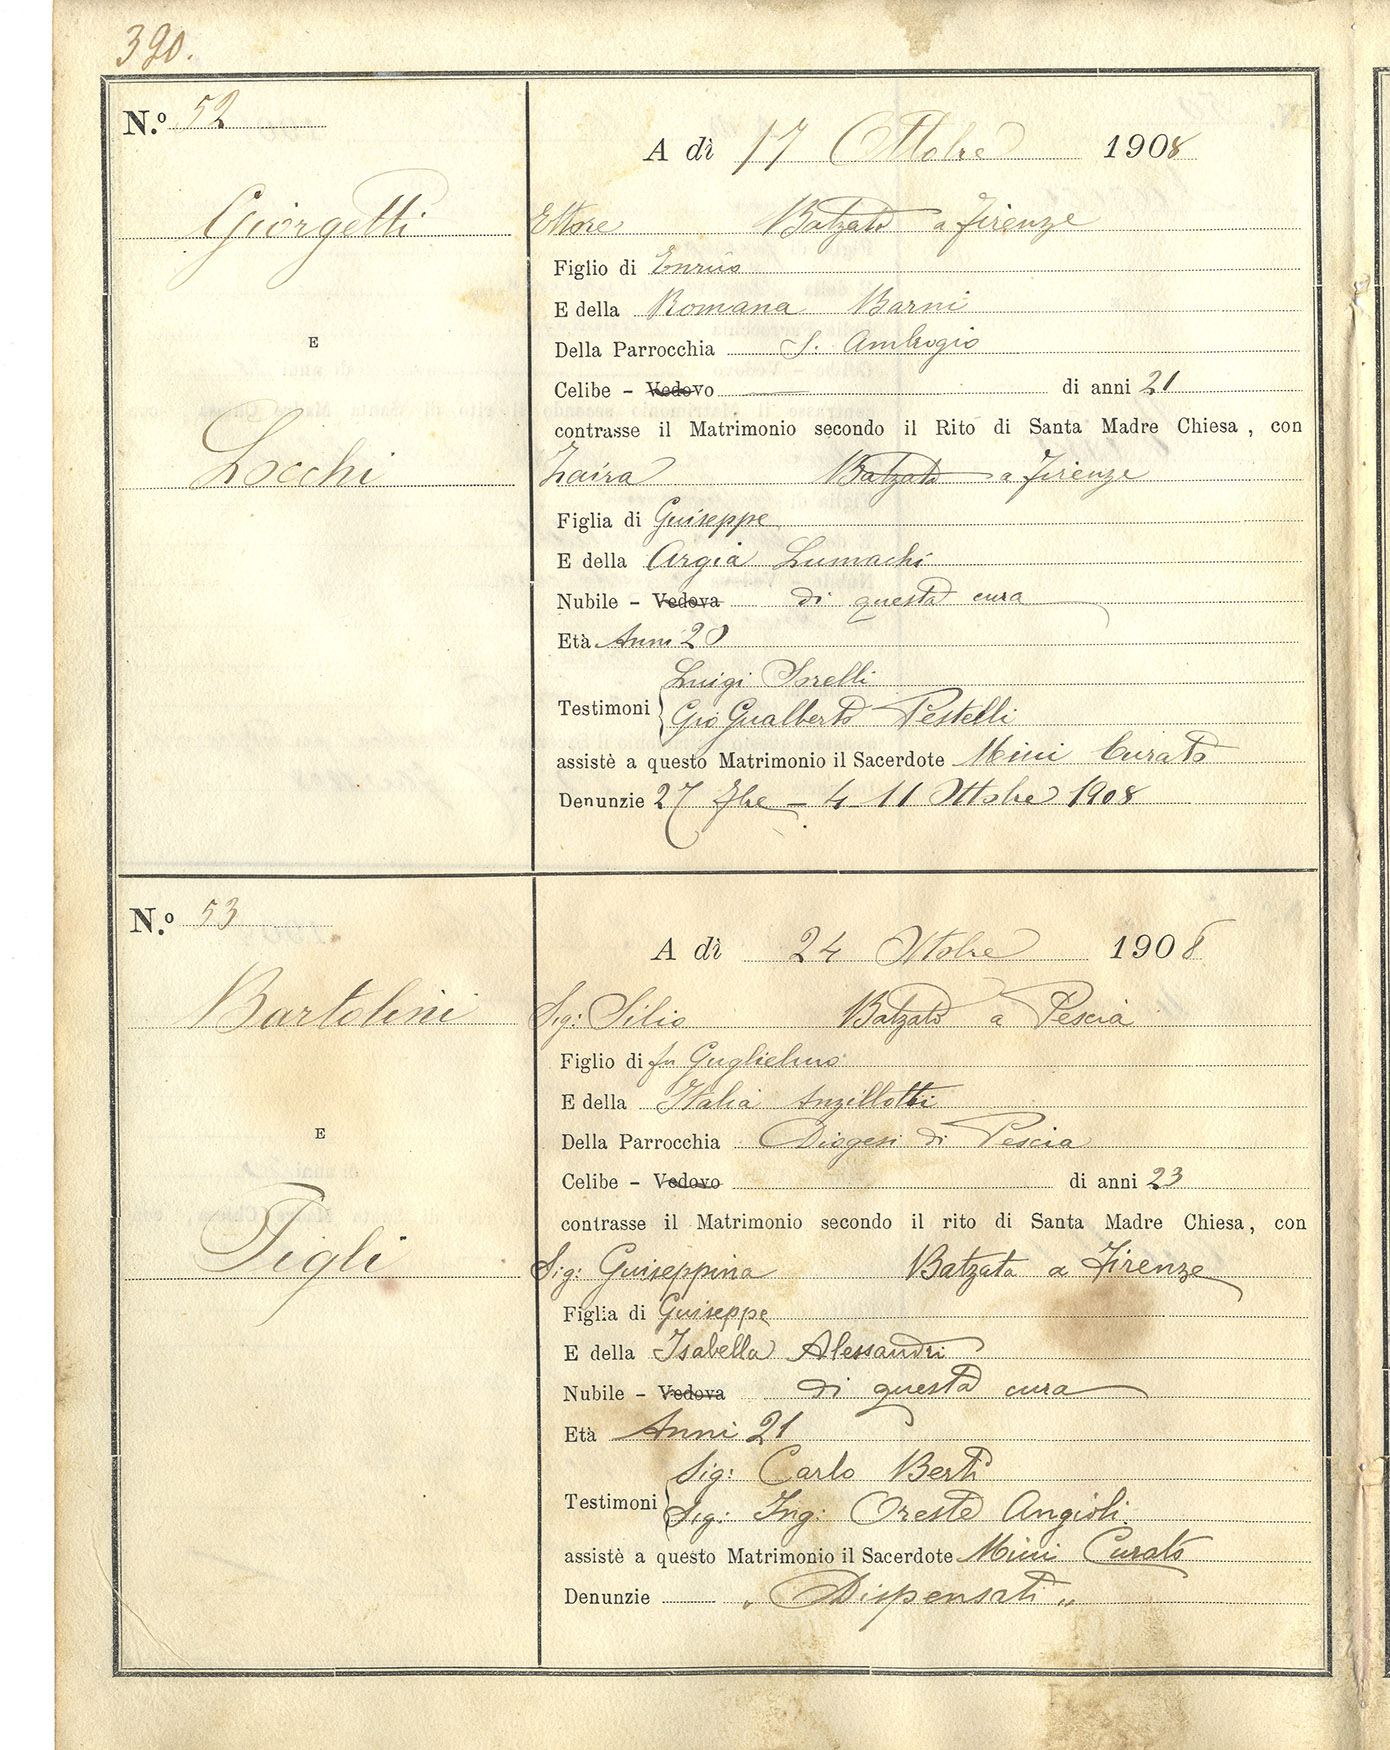 390.
N.º 52
A dì 17 Ottobre 1908
Giorgetti
Ettore Batzato a Firenze
Figlio di Enrico
E della Romana Barni
E
Della Parrocchia S. Ambrogio
Celibe – Vedovo di anni 21
contrasse il Matrimonio secondo il Rito di Santa Madre Chiesa, con
Locchi
Zaira Batzata a Firenze
Figlia di Guiseppe
E della Argia Lumachi
Nubile – Vedova di questa cura
Età Anni 20
Luigi
Testimoni Gio Gualberto Pestelli
assistè a questo Matrimonio il Sacerdote Mini Curato
Denunzie 27 – 4 – 11 Ottobre 1908
N.º 53
A dì 24 Ottobre 1908
Bartolini
Sig: Silio Batzato a Pescia
Figlio di fu Guglielmo
E della Italia Anzillotti
E
Della Parrocchia Diogesi di Pescia
Celibe – Vedovo di anni 23
contrasse il Matrimonio secondo il rito di Santa Madre Chiesa, con
Tigli
Sig: Guiseppina Batzata a Firenze
Figlia di Guiseppe
E della Isabella Alessandri
Nubile – Vedova di questa cura
Età Anni 21
Sig: Carlo Berti
Testimoni Sig: Ing: Oreste Angioli
assistè a questo Matrimonio il Sacerdote Mini Curato
Denunzie „ Dispensati „